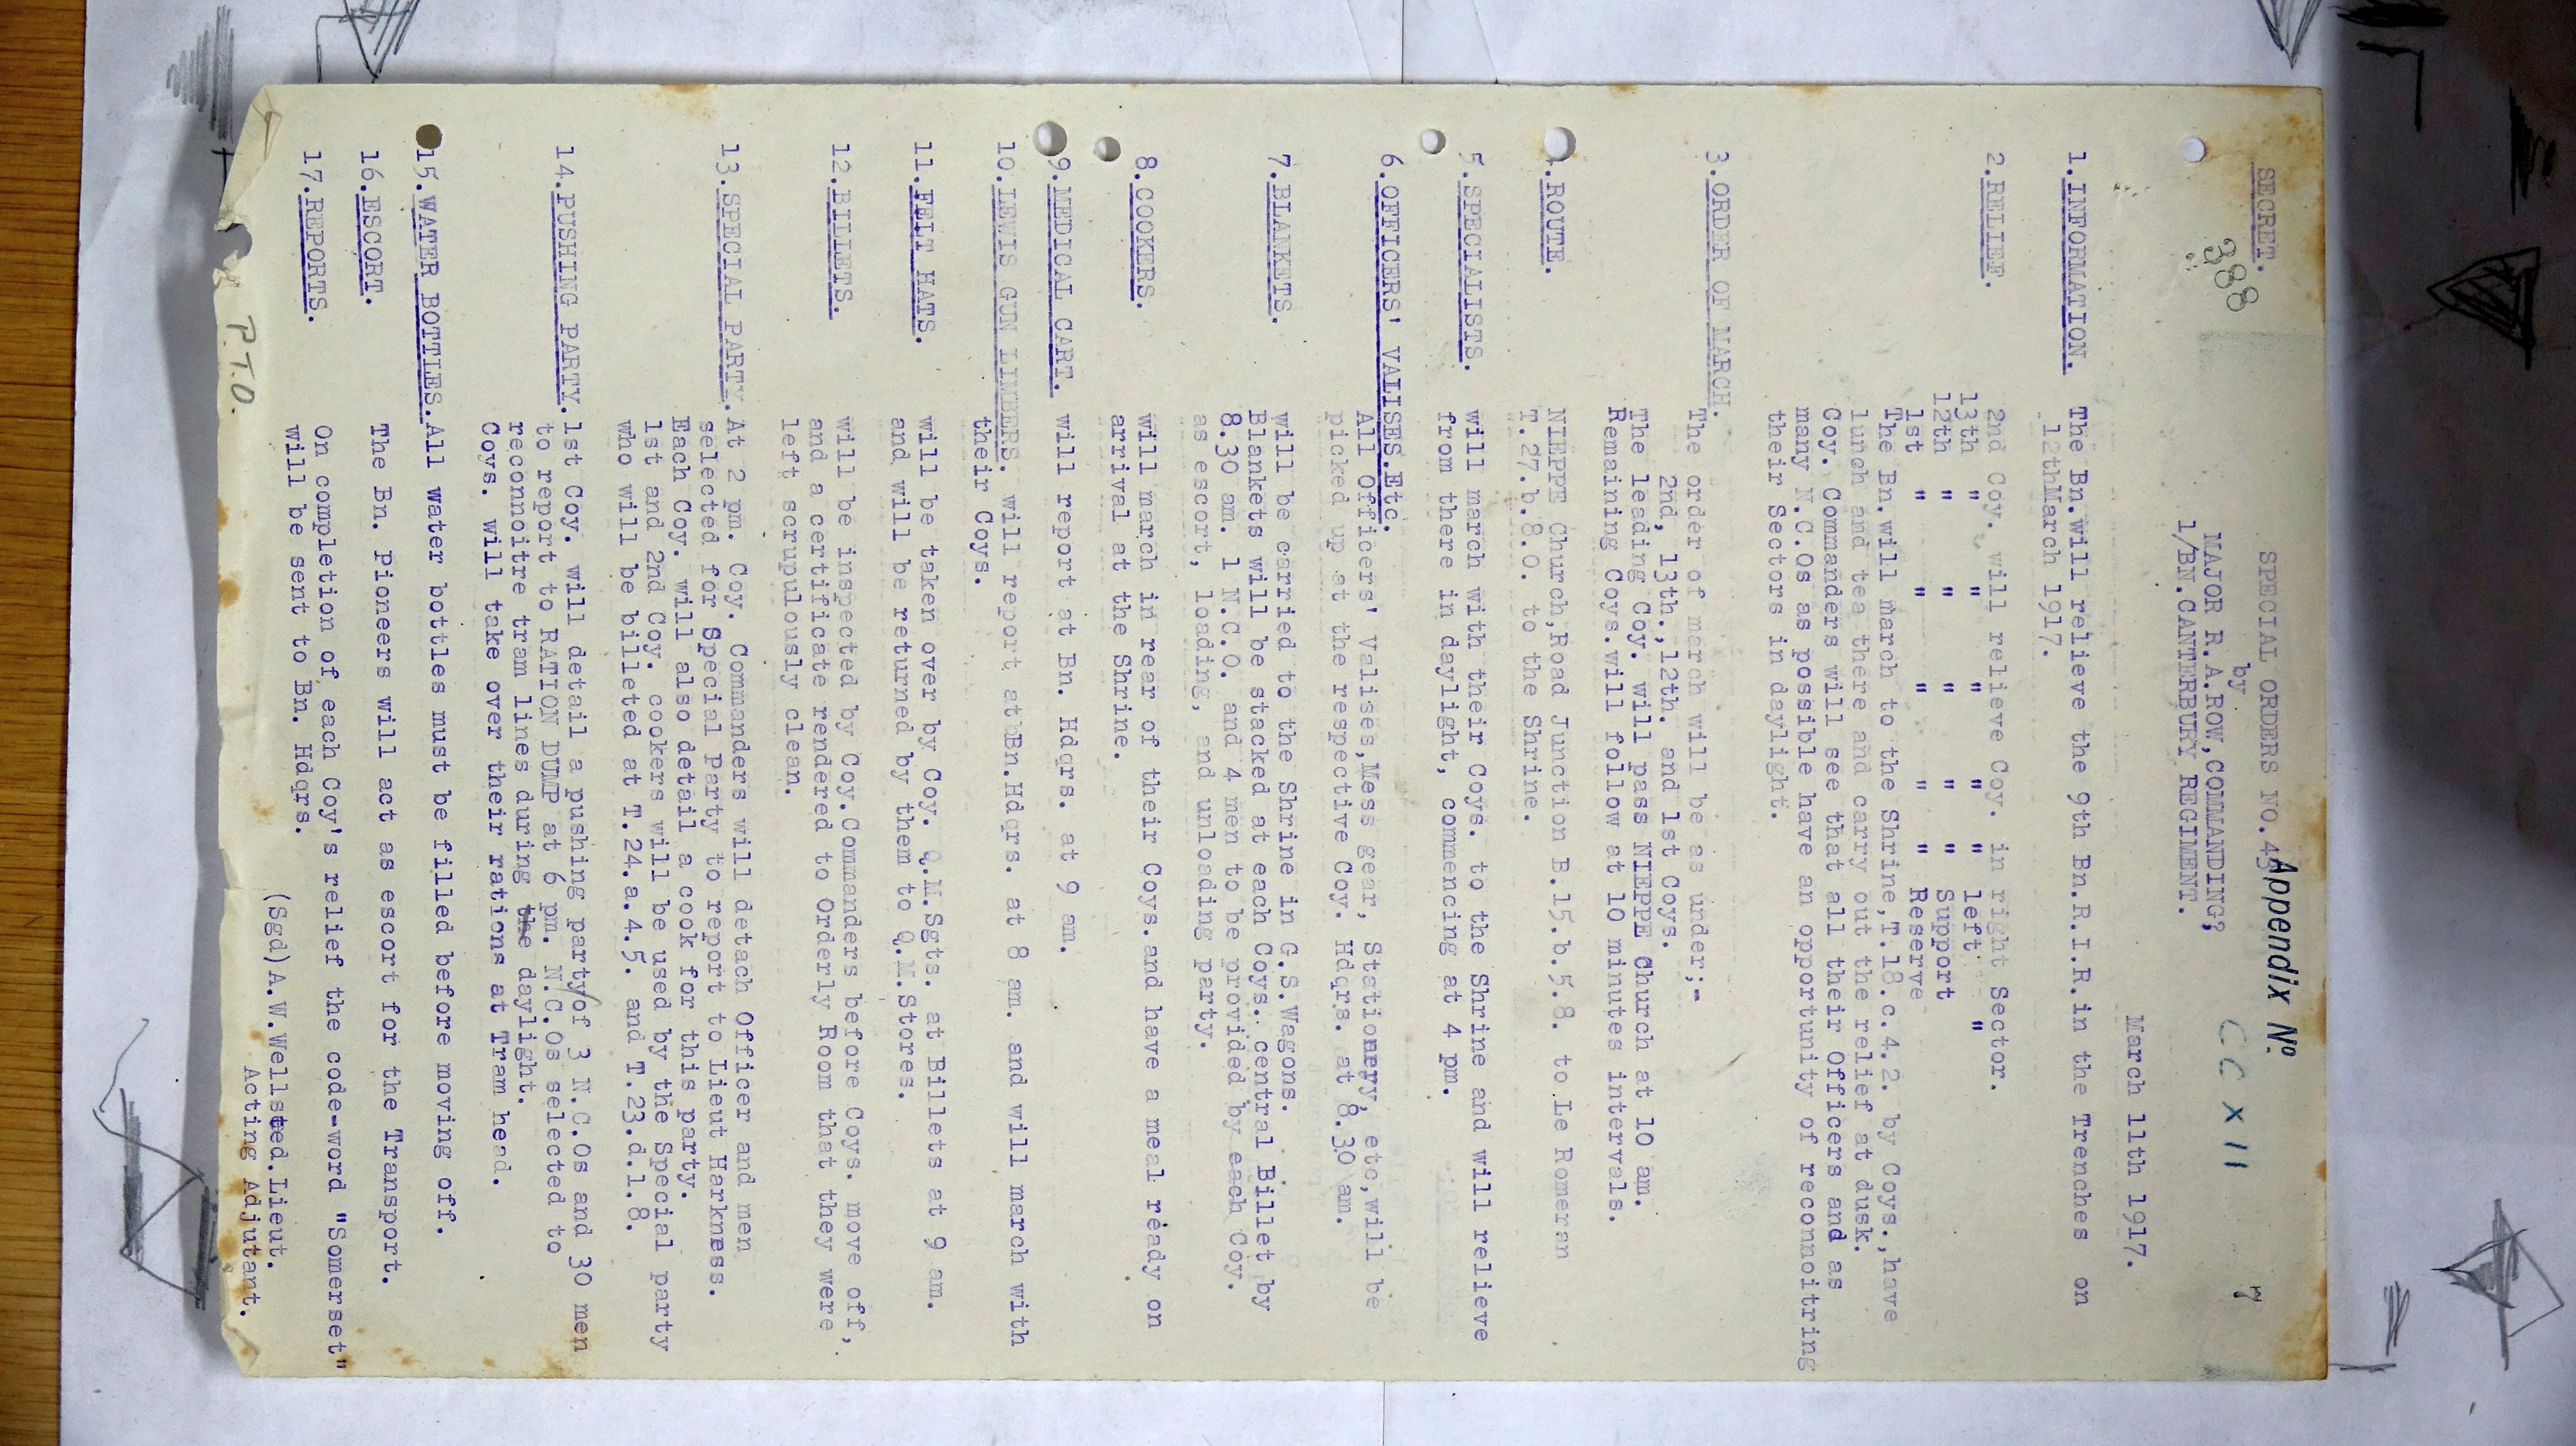 SECRET.
388
SPECIAL ORDERS NO.43
Appendix Nº
CCXII
7
by
MAJOR R.A.ROW,COMMANDING,
1/BN.CANTERBURY REGIMENT.
March 11th 1917.
1.INFORMATION. The Bn.will relieve the 9th Bn.R.I.R.in the Trenches on
12thMarch 1917.
2.RELIEF. 2nd Coy. will relieve Coy. in right Sector.
13th " " " " " left "
12th " " " " " Support
1st " " " " " Reserve
The Bn.will march to the Shrine,T.18.c.4.2. by Coys.,have
lunch and tea there and carry out the relief at dusk.
Coy. Commanders will see that all their Officers and as
many N.C.Os as possible have an opportunity of reconnoitring
their Sectors in daylight.
3.ORDER OF MARCH.
The order of march will be as under;-
2nd, 13th.,12th. and 1st Coys.
The leading Coy. will pass NIEPPE Church at 10 am.
Remaining Coys.will follow at 10 minutes intervals.
4.ROUTE. NIEPPE Church,Road Junction B.15.b.5.8. to Le Romeran
T.27.b.8.0. to the Shrine.
5.SPECIALISTS. will march with their Coys. to the Shrine and will relieve
from there in daylight, commencing at 4 pm.
6.OFFICERS' VALISES.Etc.
All Officers' Valises,Mess gear, Stationery, etc,will be
picked up at the respective Coy. Hdqrs. at 8.30 am.
7.BLANKETS. will be carried to the Shrine in G.S.Wagons.
Blankets will be stacked at each Coys. central Billet by
8.30 am. 1 N.C.O. and 4 men to be provided by each Coy.
as escort, loading, and unloading party.
8.COOKERS. will march in rear of their Coys.and have a meal ready on
arrival at the Shrine.
9.MEDICAL CART. will report at Bn. Hdqrs. at 9 am.
10.LEWIS GUN LIMBERS. will report at Bn.Hdqrs. at 8 am. and will march with
their Coys.
11.FELT HATS. will be taken over by Coy. Q.M.Sgts. at Billets at 9 am.
and will be returned by them to Q.M.Stores.
12.BILLETS. will be inspected by Coy.Commanders before Coys. move off,
and a certificate rendered to Orderly Room that they were
left scrupulously clean.
13.SPECIAL PARTY.At 2 pm. Coy. Commanders will detach Officer and men
selected for Special Party to report to Lieut Harkness.
Each Coy. will also detail a cook for this party.
1st and 2nd Coy. cookers will be used by the Special party
who will be billeted at T.24.a.4.5. and T.23.d.1.8.
14.PUSHING PARTY.1st Coy. will detail a pushing party/of 3 N.C.Os and 30 men
to report to RATION DUMP at 6 pm. N.C.Os selected to
reconnoitre tram lines during the daylight.
Coys. will take over their rations at Tram head.
15.WATER BOTTLES.All water bottles must be filled before moving off.
16.ESCORT. The Bn. Pioneers will act as escort for the Transport.
17.REPORTS. On completion of each Coy's relief the code-word "Somerset"
will be sent to Bn. Hdqrs.
(Sgd)A.W.Wellsteed.Lieut.
Acting Adjutant.
P.T.O.